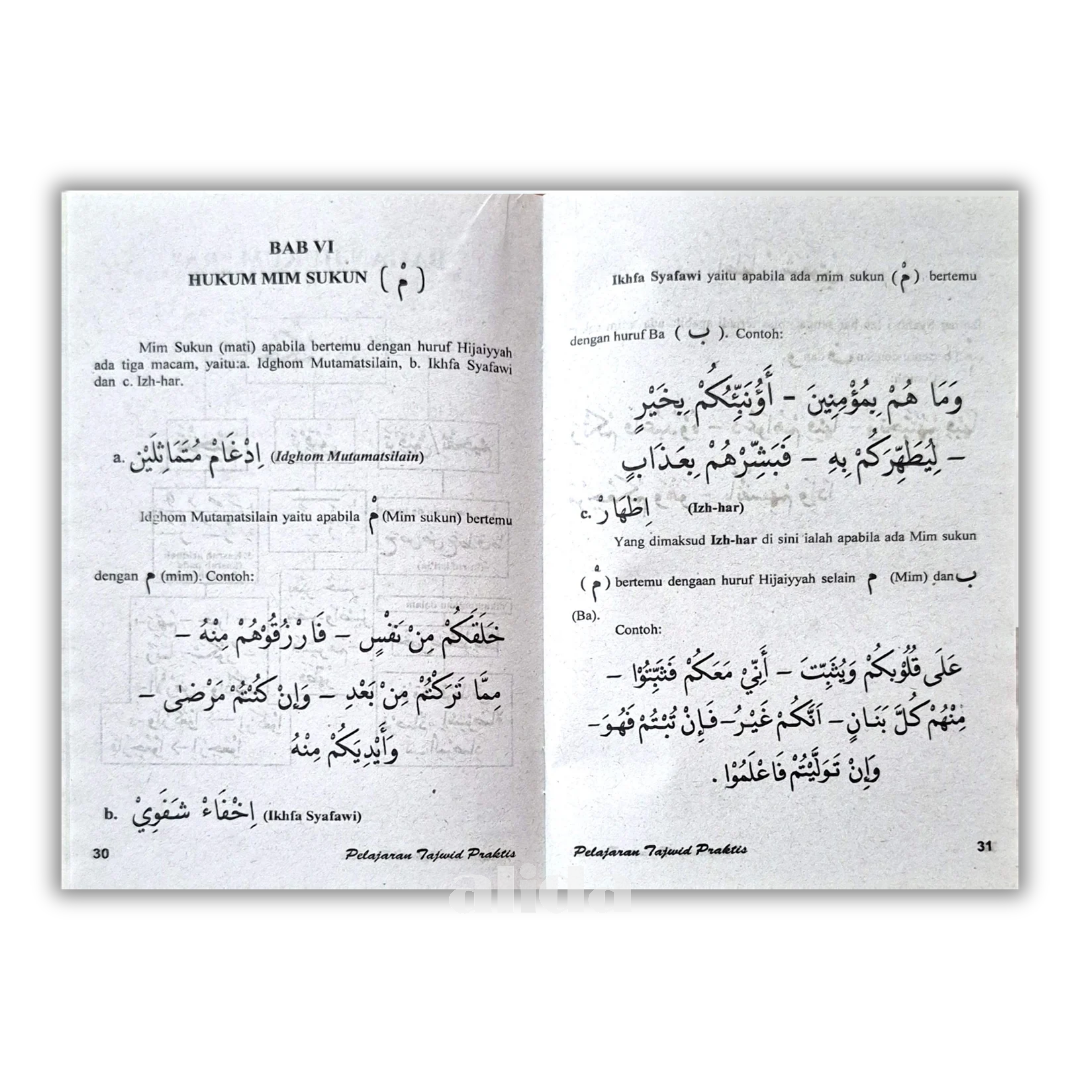 BAB VI
HUKUM MIM SUKUN ( مْ )
Mim Sukun (mati) apabila bertemu dengan huruf Hijaiyyah
ada tiga macam, yaitu:a. Idghom Mutamatsilain, b. Ikhfa Syafawi
dan c. Izh-har.
a. اِدْغَامْ مُتَمَاثِلَيْن (Idghom Mutamatsilain)
Idghom Mutamatsilain yaitu apabila مْ (Mim sukun) bertemu
dengan م (mim). Contoh:
خَلَقَكُمْ مِنْ نَفْسٍ – فَارْزُقُوْهُمْ مِنْهُ –
مِمَّا تَرَكْتُمْ مِنْ بَعْدِ – وَاِنْ كُنْتُمْ مَرْضٰى –
وَأَيْدِيَكُمْ مِنْهُ
b. اِخْفَاءْ شَفَوِيْ (Ikhfa Syafawi)
30
Pelajaran Tajwid Praktis
Ikhfa Syafawi yaitu apabila ada mim sukun ( مْ ) bertemu
dengan huruf Ba ( ب ). Contoh:
وَمَا هُمْ بِمُؤْمِنِينَ – أَؤُنَبِّئُكُمْ بِخَيْرٍ
– لِيُطَهِّرَكُمْ بِهِ – فَبَشِّرْهُمْ بِعَذَابٍ
c. اِظْهَارْ (Izh-har)
Yang dimaksud Izh-har di sini ialah apabila ada Mim sukun
( مْ ) bertemu dengaan huruf Hijaiyyah selain م (Mim) dan ب
(Ba).
Contoh:
عَلَى قُلُوْبِكُمْ وَيُثَبِّتَ – أَنِّيْ مَعَكُمْ فَثَبِّتُوْا –
مِنْهُمْ كُلَّ بَنَانٍ – اَنَّكُمْ غَيْرُ – فَإِنْ تُبْتُمْ فَهُوَ –
وَاِنْ تَوَلَّيْتُمْ فَاعْلَمُوْا .
Pelajaran Tajwid Praktis
31